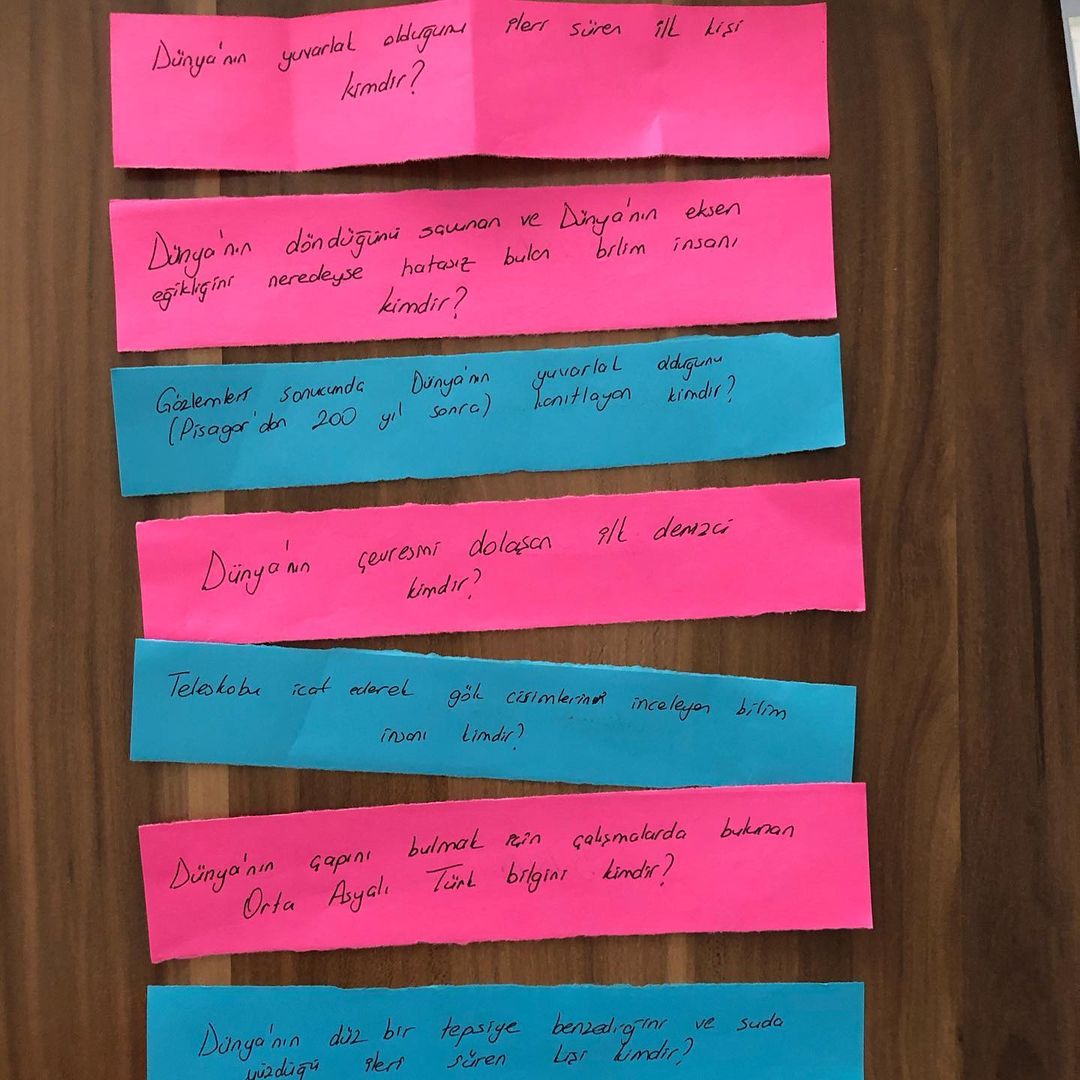 Dünya'nın yuvarlak olduğunu ileri süren ilk kişi
kimdir?
Dünya'nın döndüğünü savunan ve Dünya'nın eksen
eğikliğini neredeyse hatasız bulan bilim insanı
kimdir?
Gözlemleri sonucunda Dünya'nın yuvarlak olduğunu
(Pisagor'dan 200 yıl sonra) kanıtlayan kimdir?
Dünya'nın çevresini dolaşan ilk denizci
kimdir?
Teleskobu icat ederek gök cisimlerini inceleyen bilim
insanı kimdir?
Dünya'nın çapını bulmak için çalışmalarda bulunan
Orta Asyalı Türk bilgini kimdir?
Dünya'nın düz bir tepsiye benzediğini ve suda
yüzdüğü ileri süren kişi kimdir?